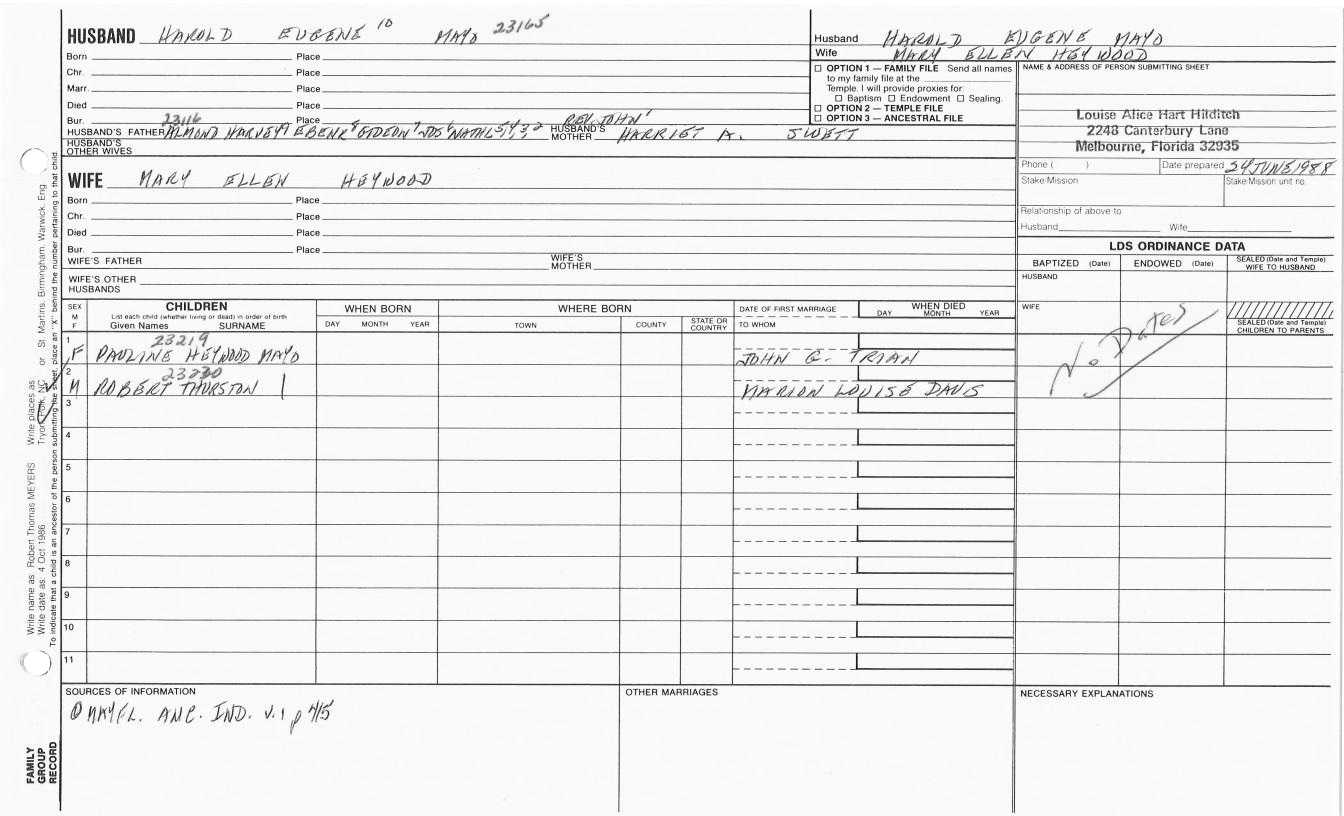 HUSBAND HAROLD EUGENE 10 MAYO 23165
Born Place
Chr. Place
Marr. Place
Died Place
Bur. 23116 Place REV. JOHN 1
HUSBAND'S FATHER ALMOND HARVEY 9 EBENR 8 GIDEON 7 JOS 6 NATHL 5, 4, 3, 2 HUSBAND'S MOTHER HARRIET A. SWETT
HUSBAND'S OTHER WIVES
Husband HAROLD EUGENE MAYO
Wife MARY ELLEN HEYWOOD
☐ OPTION 1 — FAMILY FILE Send all names
to my family file at the
Temple. I will provide proxies for
☐ Baptism ☐ Endowment ☐ Sealing.
☐ OPTION 2 — TEMPLE FILE
☐ OPTION 3 — ANCESTRAL FILE
NAME & ADDRESS OF PERSON SUBMITTING SHEET
Louise Alice Hart Hilditch
2248 Canterbury Lane
Melbourne, Florida 32935
Phone ( ) Date prepared 24 JUNE 1988
Stake/Mission Stake/Mission unit no.
Relationship of above to
Husband Wife
WIFE MARY ELLEN HEYWOOD
Born Place
Chr. Place
Died Place
Bur. Place
WIFE'S FATHER WIFE'S MOTHER
WIFE'S OTHER HUSBANDS
LDS ORDINANCE DATA
BAPTIZED (Date) ENDOWED (Date) SEALED (Date and Temple) WIFE TO HUSBAND
HUSBAND
WIFE
SEALED (Date and Temple) CHILDREN TO PARENTS
No Dates
SEX M F CHILDREN WHEN BORN WHERE BORN DATE OF FIRST MARRIAGE WHEN DIED
List each child (whether living or dead) in order of birth
Given Names SURNAME DAY MONTH YEAR TOWN COUNTY STATE OR COUNTRY TO WHOM DAY MONTH YEAR
1 23219
F PAULINE HEYWOOD MAYO JOHN G. TRIAN
2 23220
M ROBERT THURSTON MARION LOUISE DAVIS
3
4
5
6
7
8
9
10
11
SOURCES OF INFORMATION
① MAYFL. ANC. IND. V.1 p 415
OTHER MARRIAGES
NECESSARY EXPLANATIONS
FAMILY GROUP RECORD
Write name as Robert Thomas MEYERS Write places as Tryon, Polk, NC or St. Martins, Birmingham, Warwick, Eng
Write date as: 4 Oct 1986
To indicate that a child is an ancestor of the person submitting the sheet, place an "X" behind the number pertaining to that child.